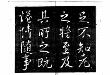 足不知老
之將至及
其所之既
惓情隨事